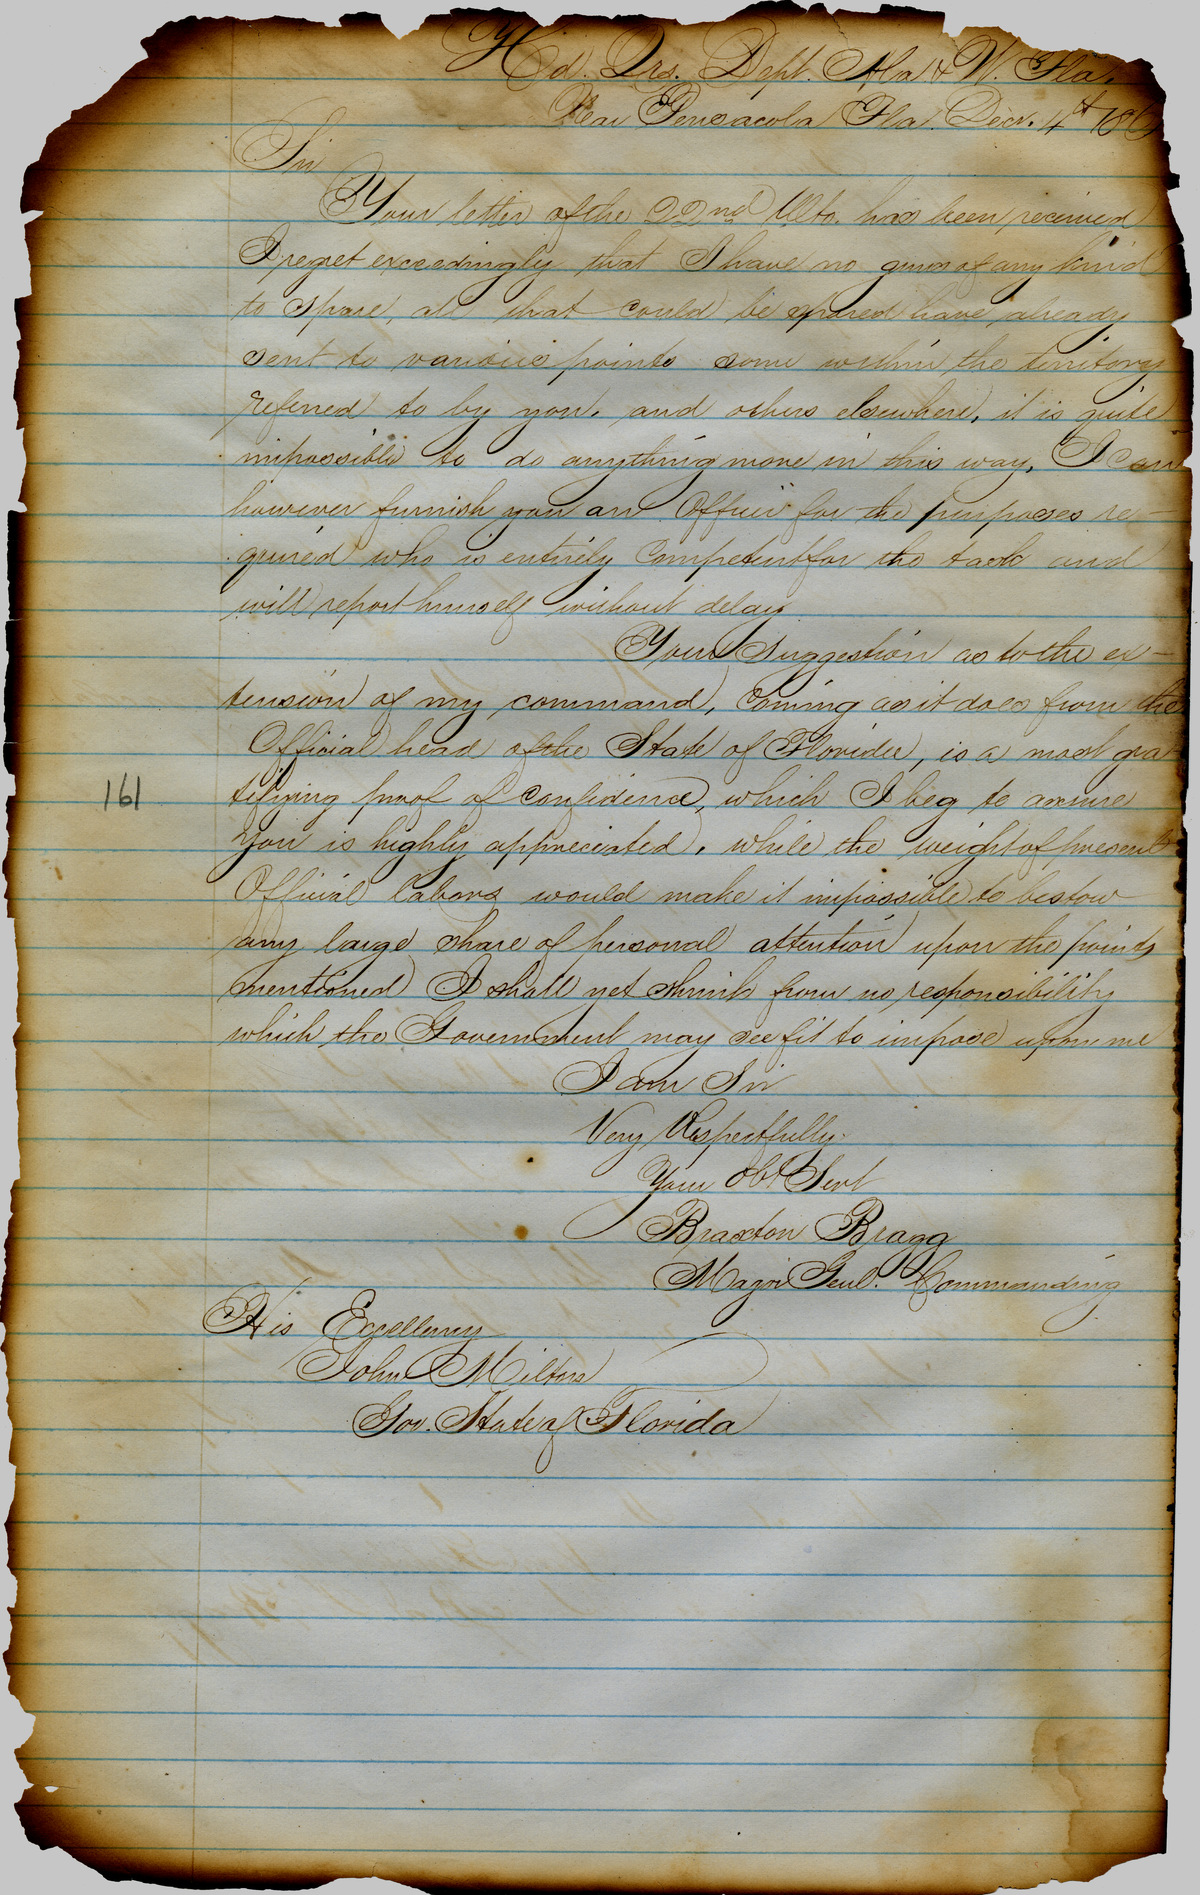 Hd. Qrs. Dept. Ala & W. Fla.
Near Pensacola Fla. Decr. 4th 186
Sir
Your letter of the 22nd Ulto. has been received
I regret exceedingly that I have no guns of any kind
to spare, all that could be spared have already
sent to various points some within the territory
referred to by you, and others elsewhere, it is quite
impossible to do anything more in this way, I can
however furnish you an Officer for the purposes re-
quired who is entirely competent for the task and
will report himself without delay
Your Suggestion as to the ex-
tension of my command, coming as it does from the
Official head of the State of Florida, is a most gra-
tifying proof of confidence, which I beg to assure
you is highly appreciated, while the weight of present
Official labors would make it impossible to bestow
any large share of personal attention upon the points
mentioned I shall yet shrink from no responsibility
161
which the Government may see fit to impose upon me
I am Sir
Very Respectfully
Your Obt Servt
Braxton Bragg
Major Genl. Commanding
His Excellency
John Milton
Gov. State of Florida